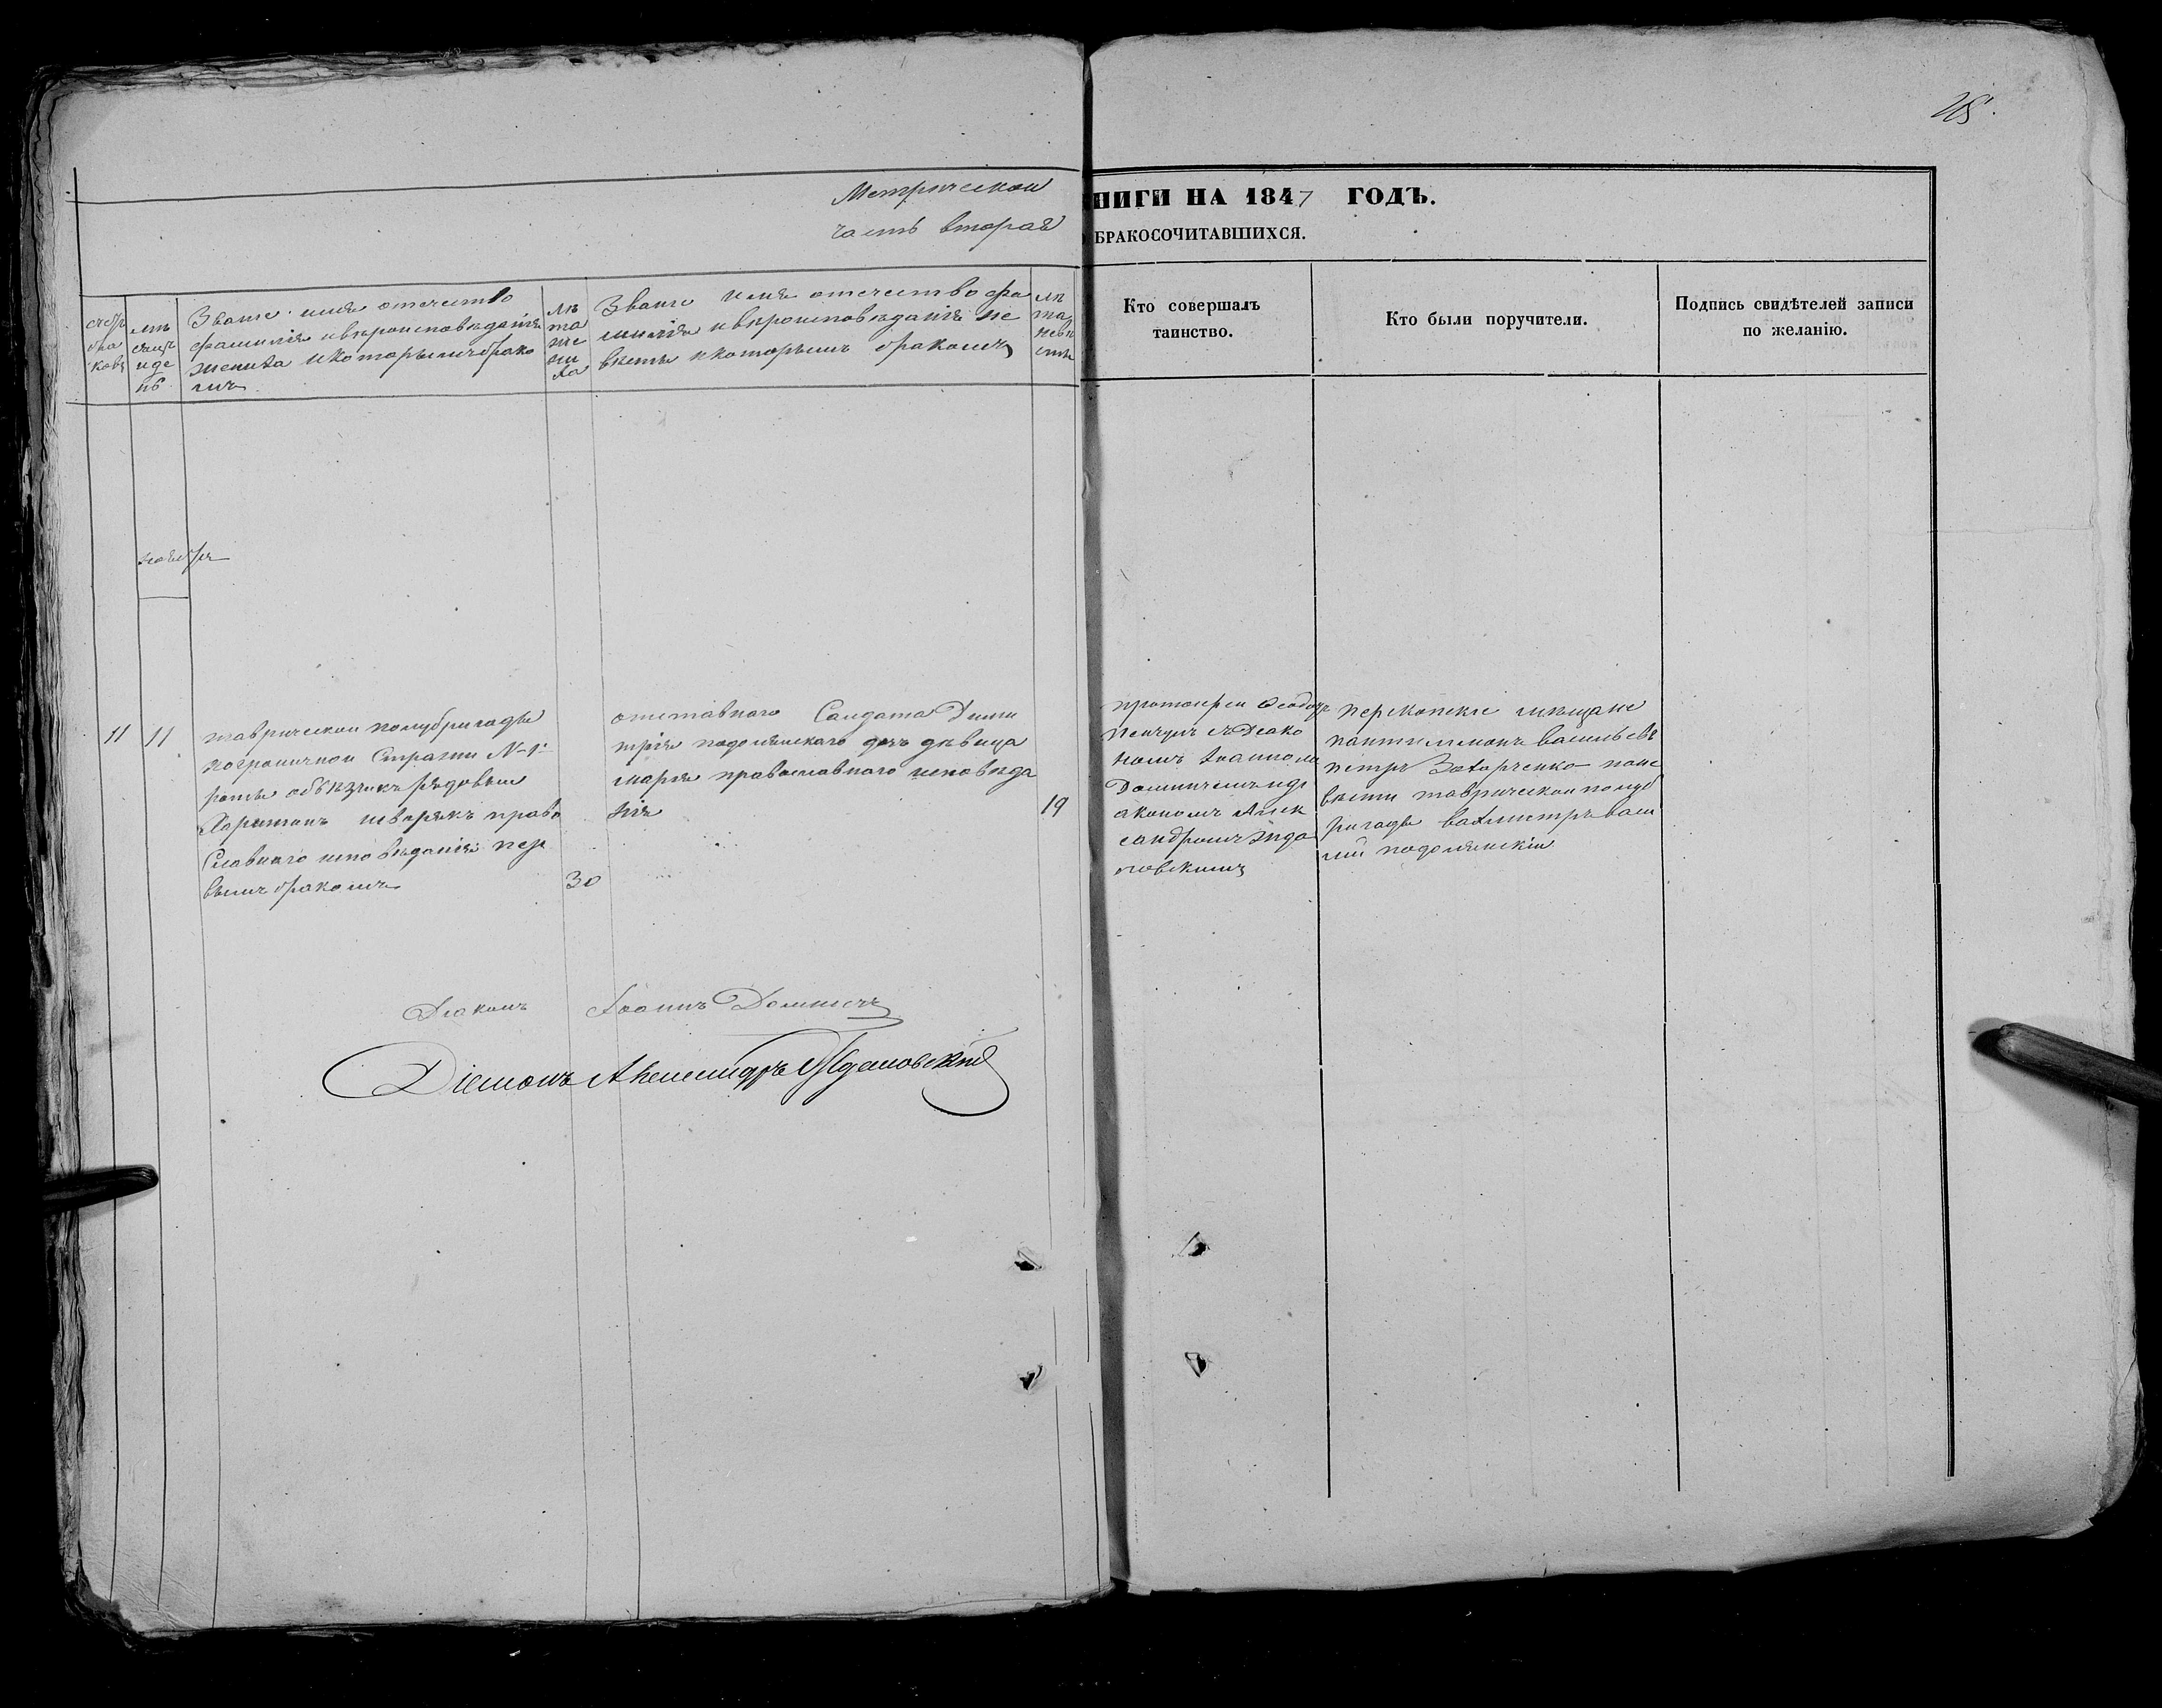 Метрической
часть вторая
НИГИ НА 1847 ГОДЪ.
БРАКОСОЧИТАВШИХСЯ.
счетъ
бра
ковъ
мѣ
сяцъ
и де
нь
Званіе имя отечество
фамилія и вѣроисповѣданія
жениха и которымъ брако
мъ
лѣ
та
же
ни
ха
Званіе имя отечество фа
милія и вѣроисповѣданія не
вѣсты и которымъ бракомъ
лѣ
та
невѣ
сты
Кто совершалъ
таинство.
Кто были поручители.
Подпись свидѣтелей записи
по желанію.
ноябрь
11
11
таврической полубригады
пограничной Стражи №1
роты объѣзчикъ рядовый
Харитонъ право
Славнаго исповѣданія пер
вымъ бракомъ
30
отставнаго Салдата Дими
трія подолянскаго дочь дѣвица
марія православнаго исповѣда
нія
19
протоіерей Феодоръ
съ Діако
номъ Іоанномъ
и ді
акономъ Алек
сандромъ
новскимъ
перекопскіе мѣщане
пантилимонъ васильевъ
петръ Захарченко по не
вѣсти таврической полуб
ригады вахмистръ васи
лій подолянскій
Діаконъ Іоаннъ
Діаконъ Александръ